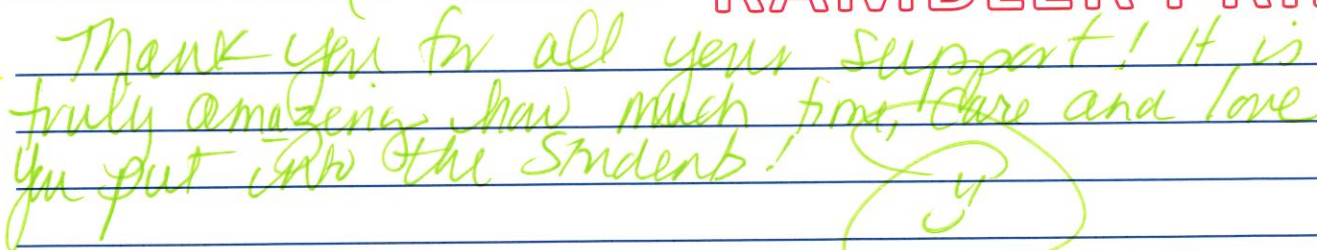 RAMBLER PRI
Thank you for all your support! It is
truly amazing how much time, care and love
you put into the Students!